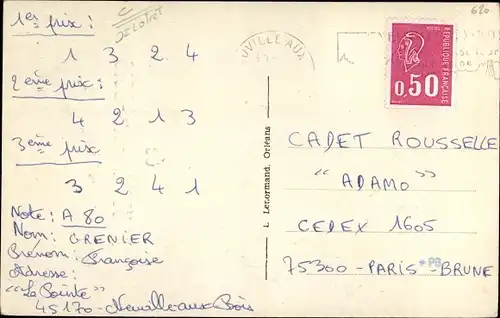 1er prix :
1 3 2 4
2ème prix :
4 2 1 3
3ème prix
3 2 4 1
Note : A 80
Nom : GRENIER
Prénom : Françoise
Adresse :
"Le Pointe"
45170 - Neuville aux Bois
C
620
UVILLE AUX
L. Lenormand, Orléans
REPUBLIQUE FRANÇAISE
0,50
CADET ROUSSELLE
"ADAMO"
CEDEX 1605
75300 - PARIS - BRUNE